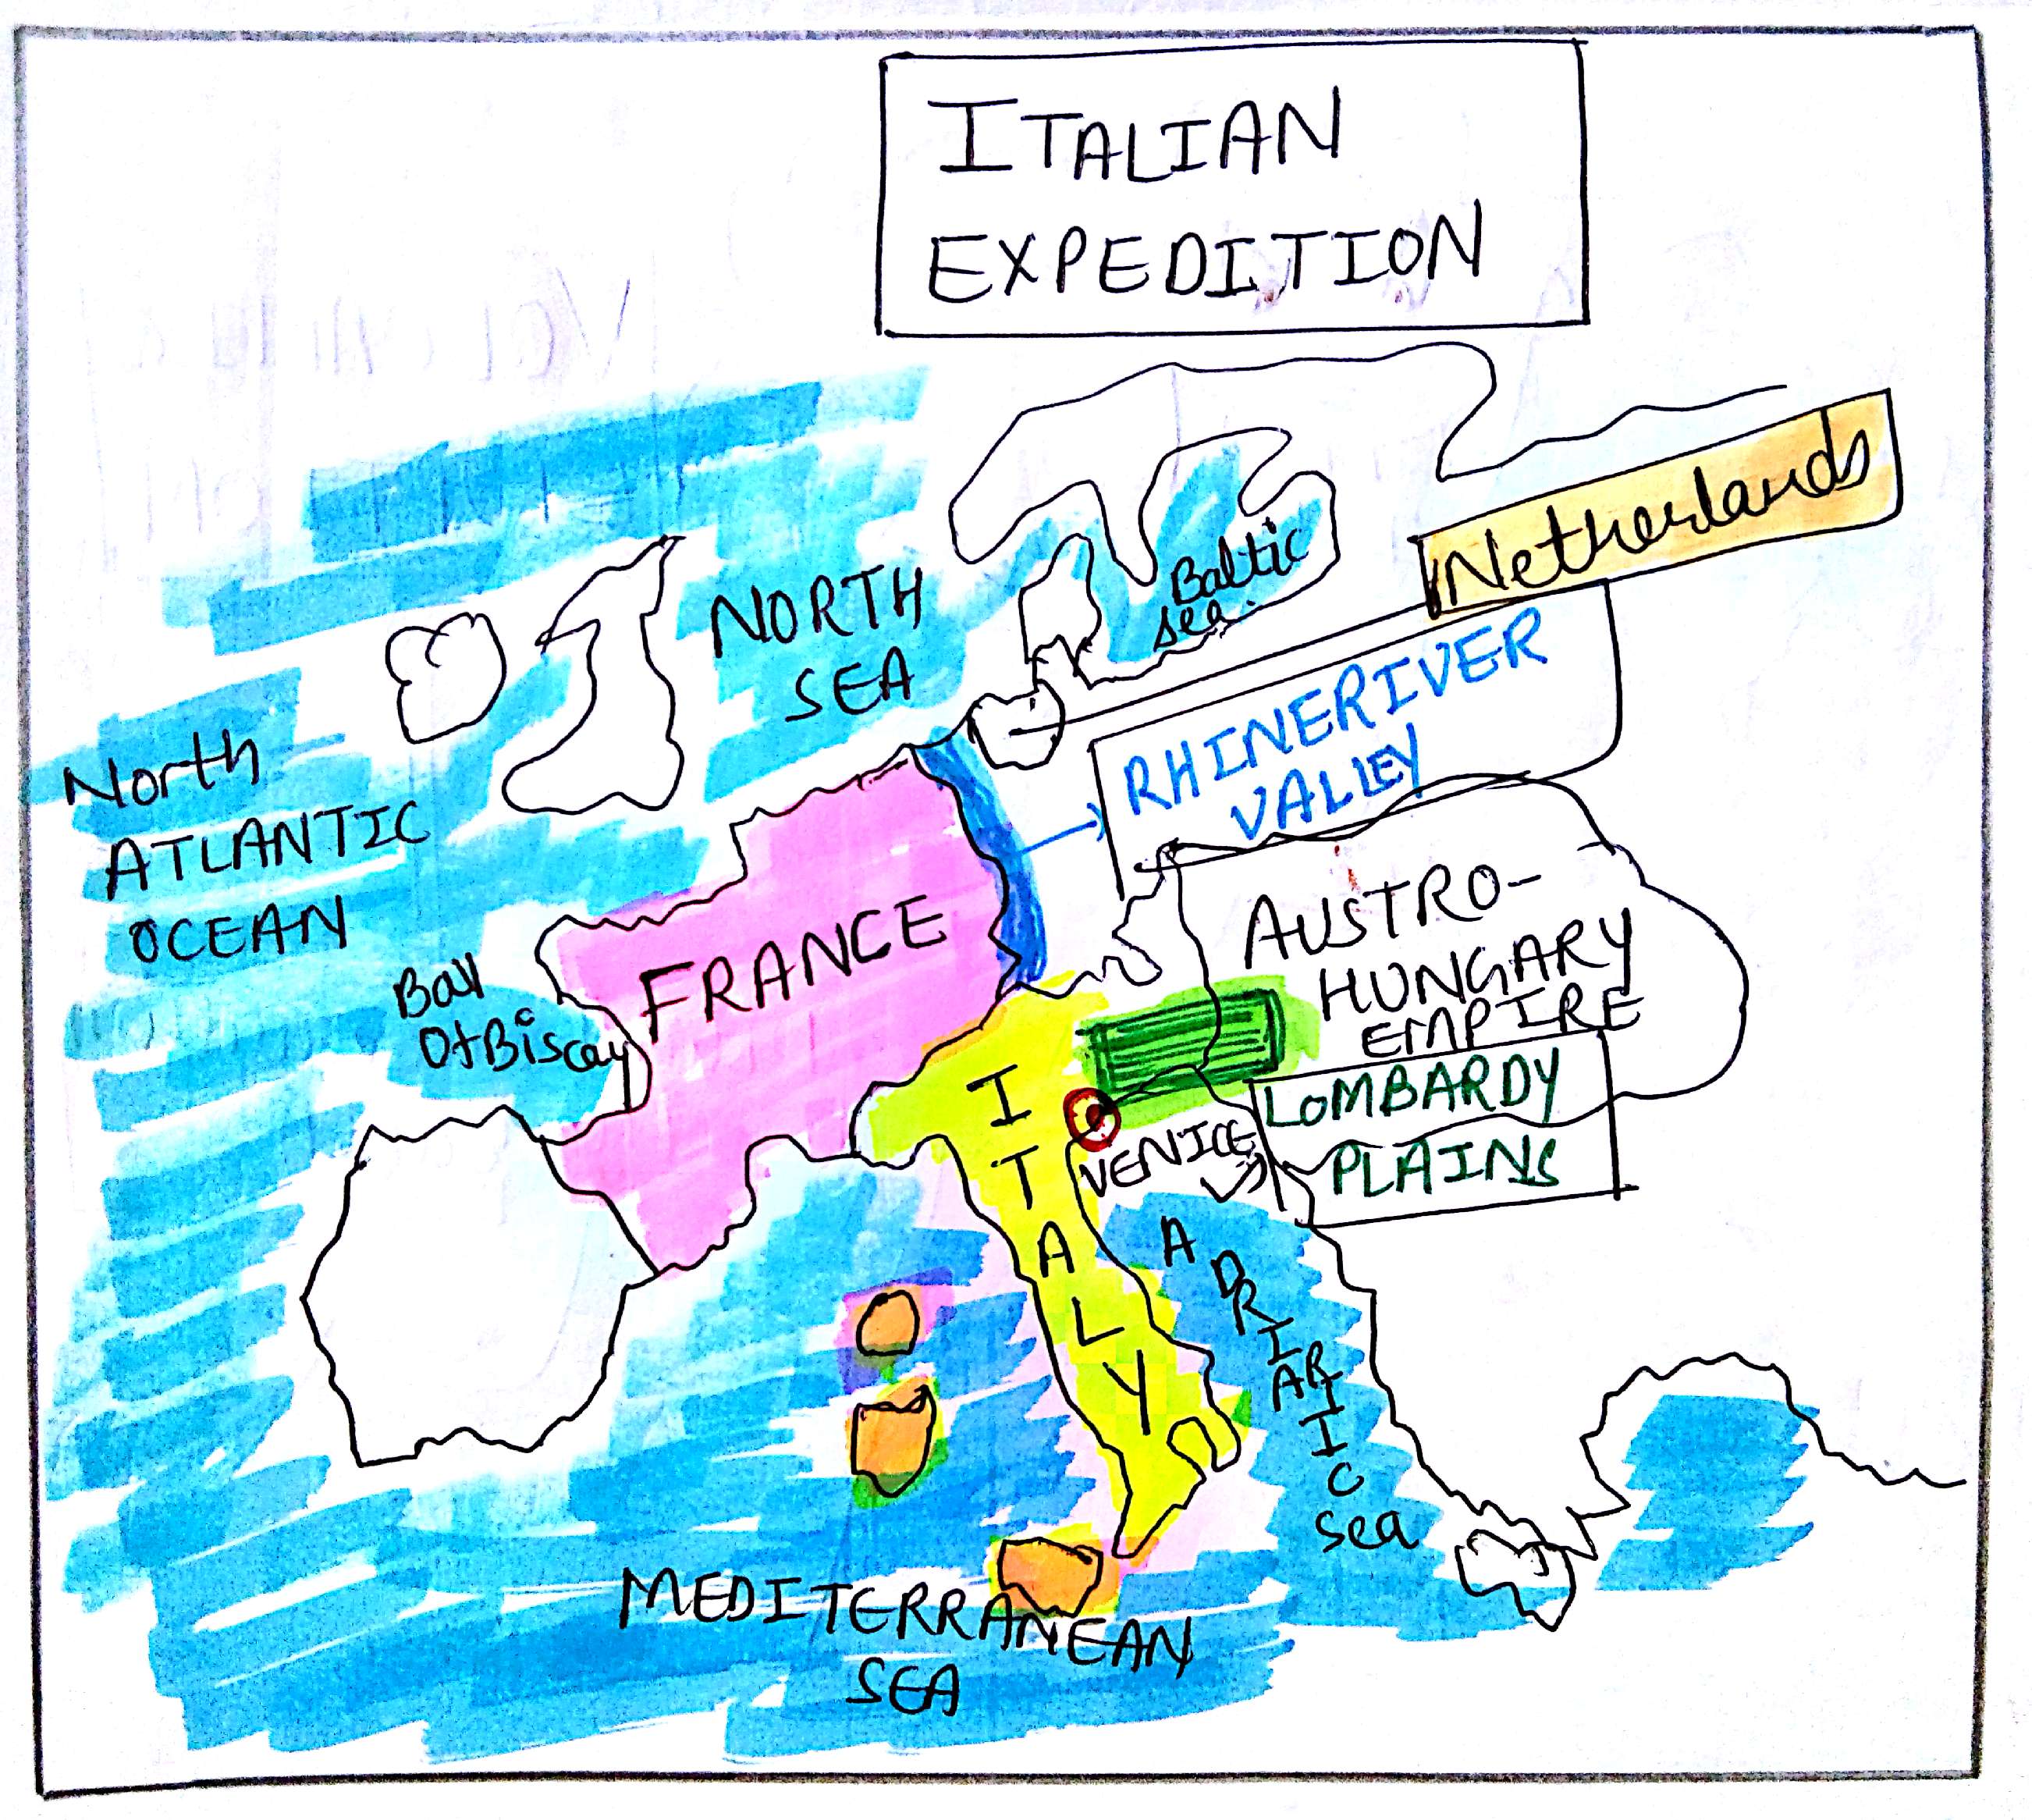 ITALIAN
EXPEDITION
Netherlands
Baltic
sea.
NORTH
SEA
RHINERIVER
VALLEY
North
ATLANTIC
OCEAN
AUSTRO-
HUNGARY
EMPIRE
FRANCE
Bay
Of Biscay
ITALY
LOMBARDY
PLAINS
VENICE
ADRIARIC
Sea
MEDITERRANEAN
SEA